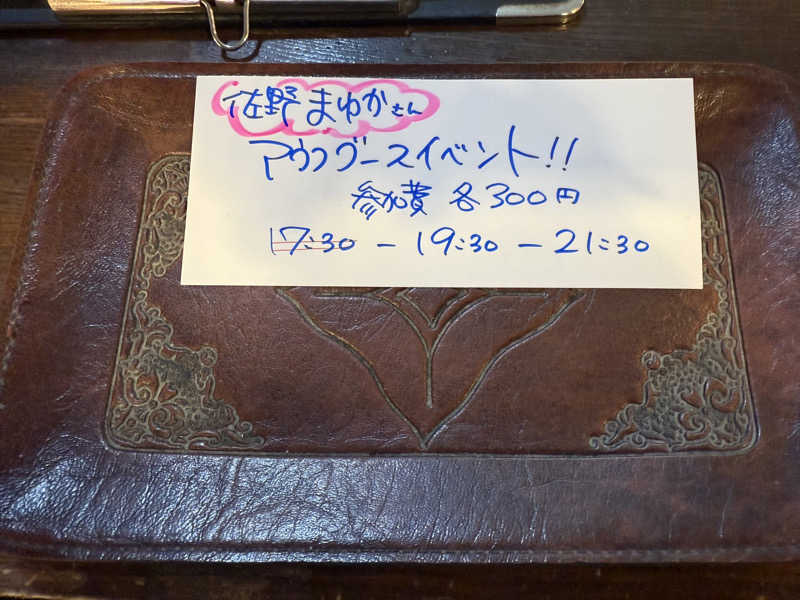 佐野まゆかさん
アウフグースイベント!!
参加費 各300円
17:30 - 19:30 - 21:30